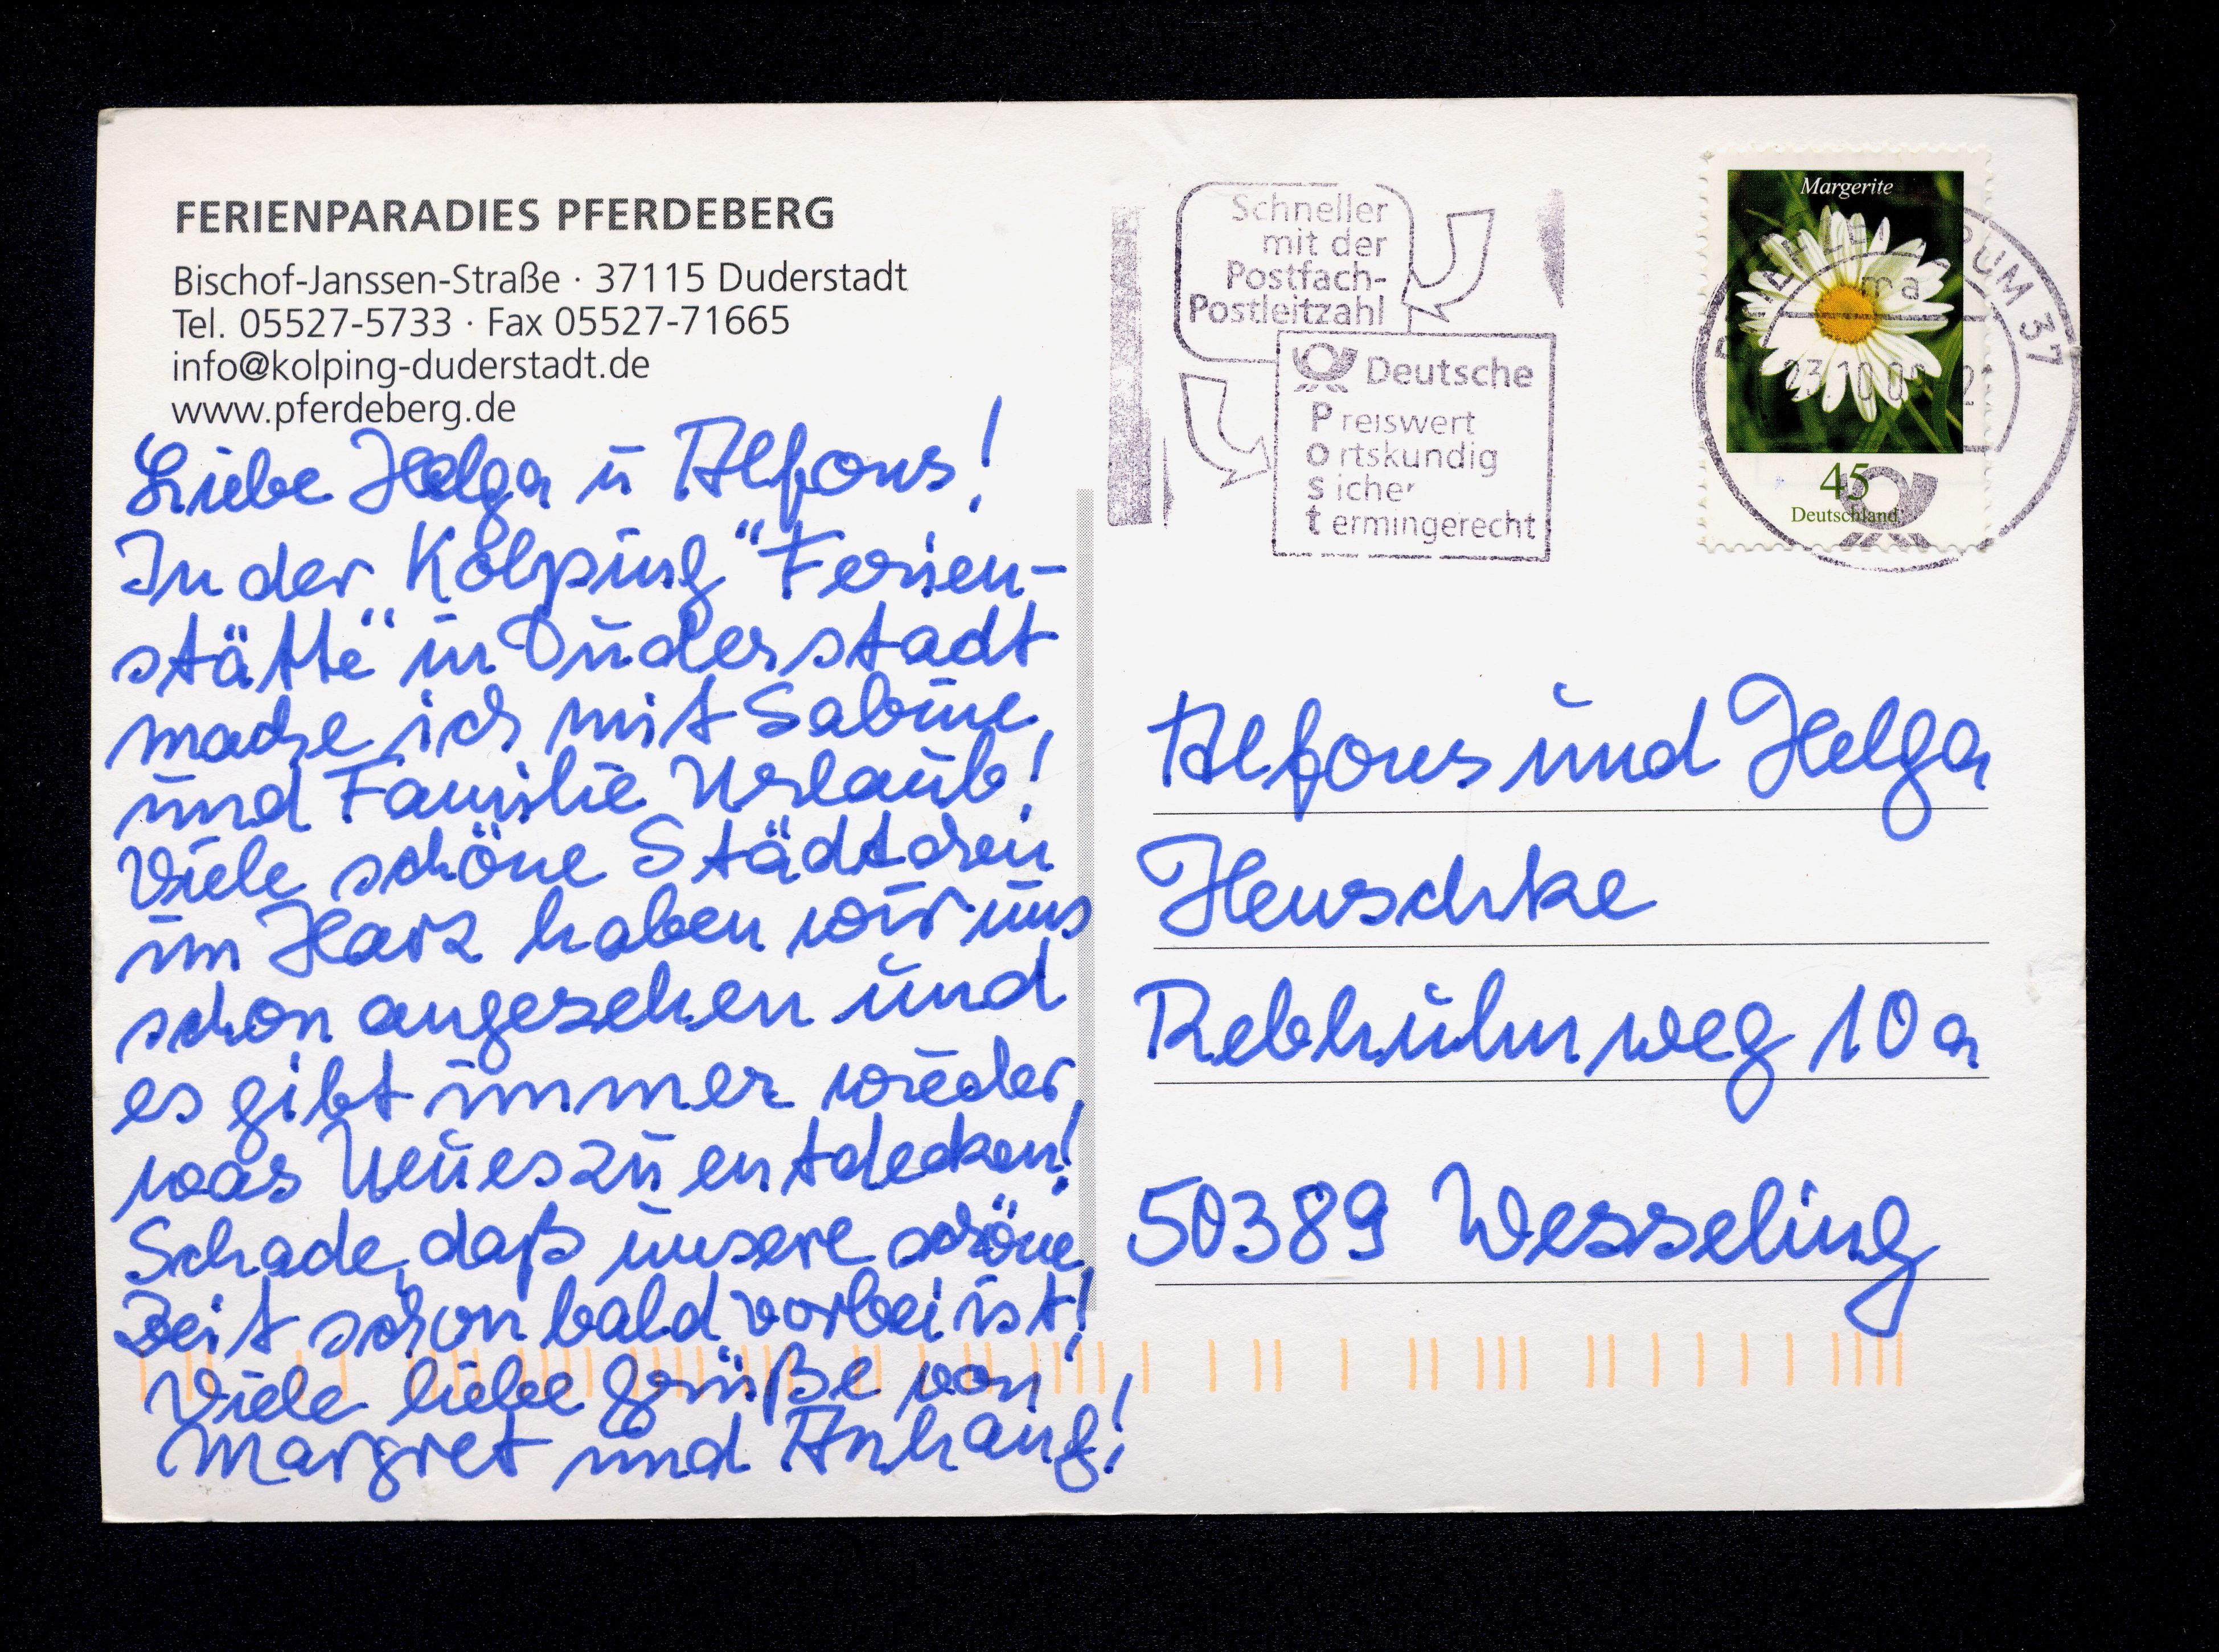 FERIENPARADIES PFERDEBERG
Bischof-Janssen-Straße · 37115 Duderstadt
Tel. 05527-5733 · Fax 05527-71665
info@kolping-duderstadt.de
www.pferdeberg.de
Liebe Helga u Alfons!
In der Kolping "Ferien-
stätte" in Duderstadt
mache ich mit Sabine
und Familie Urlaub!
Viele schöne Städtchen
im Harz haben wir uns
schon angesehen und
es gibt immer wieder
was Neues zu entdecken!
Schade, daß unsere schöne
Zeit schon bald vorbei ist!
Viele liebe Grüße von
Margret und Anhang!
Schneller
mit der
Postfach-
Postleitzahl
Deutsche
Preiswert
ortskundig
sicher
termingerecht
Margerite
45
Deutschland
UM 37
ma
Alfons und Helga
Henschke
Rebhuhnweg 10a
50389 Wesseling